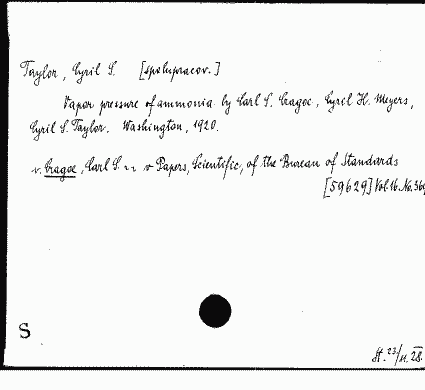 Taylor, Cyril S. [spolupracov.]
Vapor pressure of ammonia by Carl S. Cragoe, Cyril H. Meyers,
Cyril S. Taylor. Washington, 1920.
v. Cragoe, Carl S. v Papers, Scientific, of the Bureau of Standards
[59629] Vol. 16. No. 369
S
St. 23/11. 28.